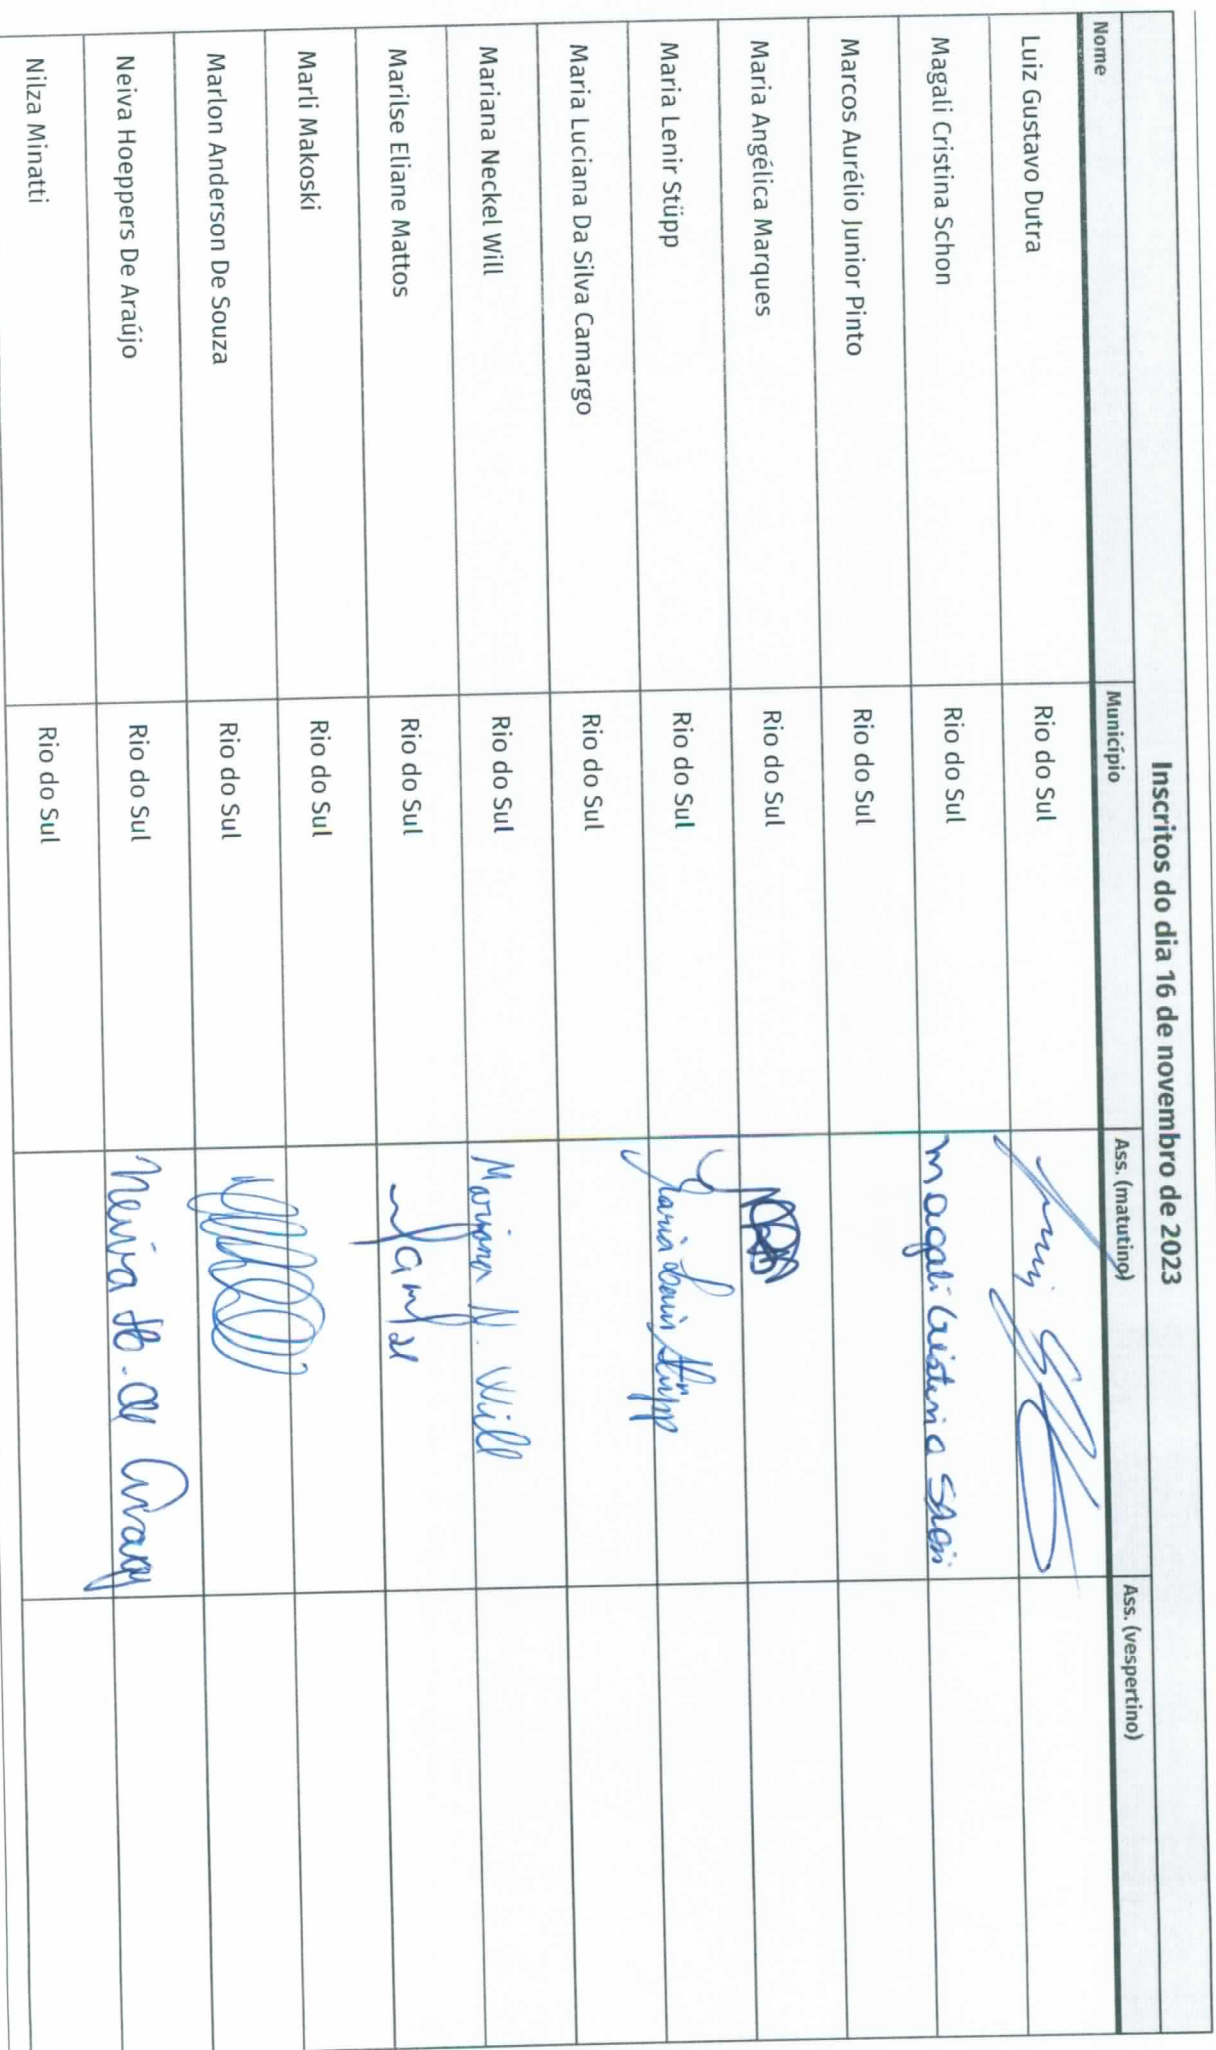 Inscritos do dia 16 de novembro de 2023
Nome Município Ass. (matutino) Ass. (vespertino)
Luiz Gustavo Dutra Rio do Sul
Magali Cristina Schon Rio do Sul Magali Cristina
Marcos Aurélio Junior Pinto Rio do Sul
Maria Angélica Marques Rio do Sul
Maria Lenir Stüpp Rio do Sul Maria Lenir Stüpp
Maria Luciana Da Silva Camargo Rio do Sul
Mariana Neckel Will Rio do Sul Mariana N. Will
Marilse Eliane Mattos Rio do Sul
Marli Makoski Rio do Sul
Marlon Anderson De Souza Rio do Sul
Neiva Hoeppers De Araújo Rio do Sul Neiva H. de
Nilza Minatti Rio do Sul